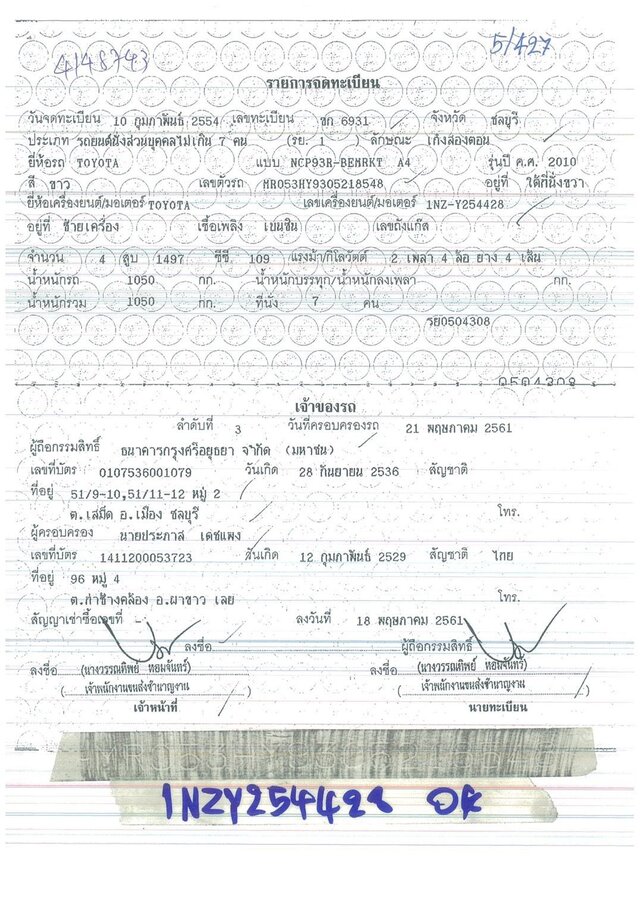 5/427
4148743
รายการจดทะเบียน
วันจดทะเบียน 10 กุมภาพันธ์ 2554 เลขทะเบียน ขก 6931 จังหวัด ชลบุรี
ประเภท รถยนต์นั่งส่วนบุคคลไม่เกิน 7 คน (รย. 1 ) ลักษณะ เก๋งสองตอน
ยี่ห้อรถ TOYOTA แบบ NCP93R-BEMRKT A4 รุ่นปี ค.ศ. 2010
สี ขาว เลขตัวรถ MR053HY9305218548 อยู่ที่ ใต้ที่นั่งขวา
ยี่ห้อเครื่องยนต์/มอเตอร์ TOYOTA เลขเครื่องยนต์/มอเตอร์ 1NZ-Y254428
อยู่ที่ ซ้ายเครื่อง เชื้อเพลิง เบนซิน เลขถังแก๊ส
จำนวน 4 สูบ 1497 ซีซี. 109 แรงม้า/กิโลวัตต์ 2 เพลา 4 ล้อ ยาง 4 เส้น
น้ำหนักรถ 1050 กก. น้ำหนักบรรทุก/น้ำหนักลงเพลา กก.
น้ำหนักรวม 1050 กก. ที่นั่ง 7 คน
รย0504308
0504308
เจ้าของรถ
ลำดับที่ 3 วันที่ครอบครองรถ 21 พฤษภาคม 2561
ผู้ถือกรรมสิทธิ์ ธนาคารกรุงศรีอยุธยา จำกัด (มหาชน)
เลขที่บัตร 0107536001079 วันเกิด 28 กันยายน 2536 สัญชาติ
ที่อยู่ 51/9-10,51/11-12 หมู่ 2
ต.เสม็ด อ.เมือง ชลบุรี โทร.
ผู้ครอบครอง นายประภาส เดชแพง
เลขที่บัตร 1411200053723 วันเกิด 12 กุมภาพันธ์ 2529 สัญชาติ ไทย
ที่อยู่ 96 หมู่ 4
ต.ท่าช้างคล้อง อ.ผาขาว เลย โทร.
สัญญาเช่าซื้อเลขที่ - ลงวันที่ 18 พฤษภาคม 2561
ลงชื่อ ผู้ถือกรรมสิทธิ์
ลงชื่อ (นางวรรณทิพย์ หอมจันทร์) ลงชื่อ (นางวรรณทิพย์ หอมจันทร์)
(เจ้าพนักงานขนส่งชำนาญงาน) (เจ้าพนักงานขนส่งชำนาญงาน)
เจ้าหน้าที่ นายทะเบียน
1NZY254428 OK